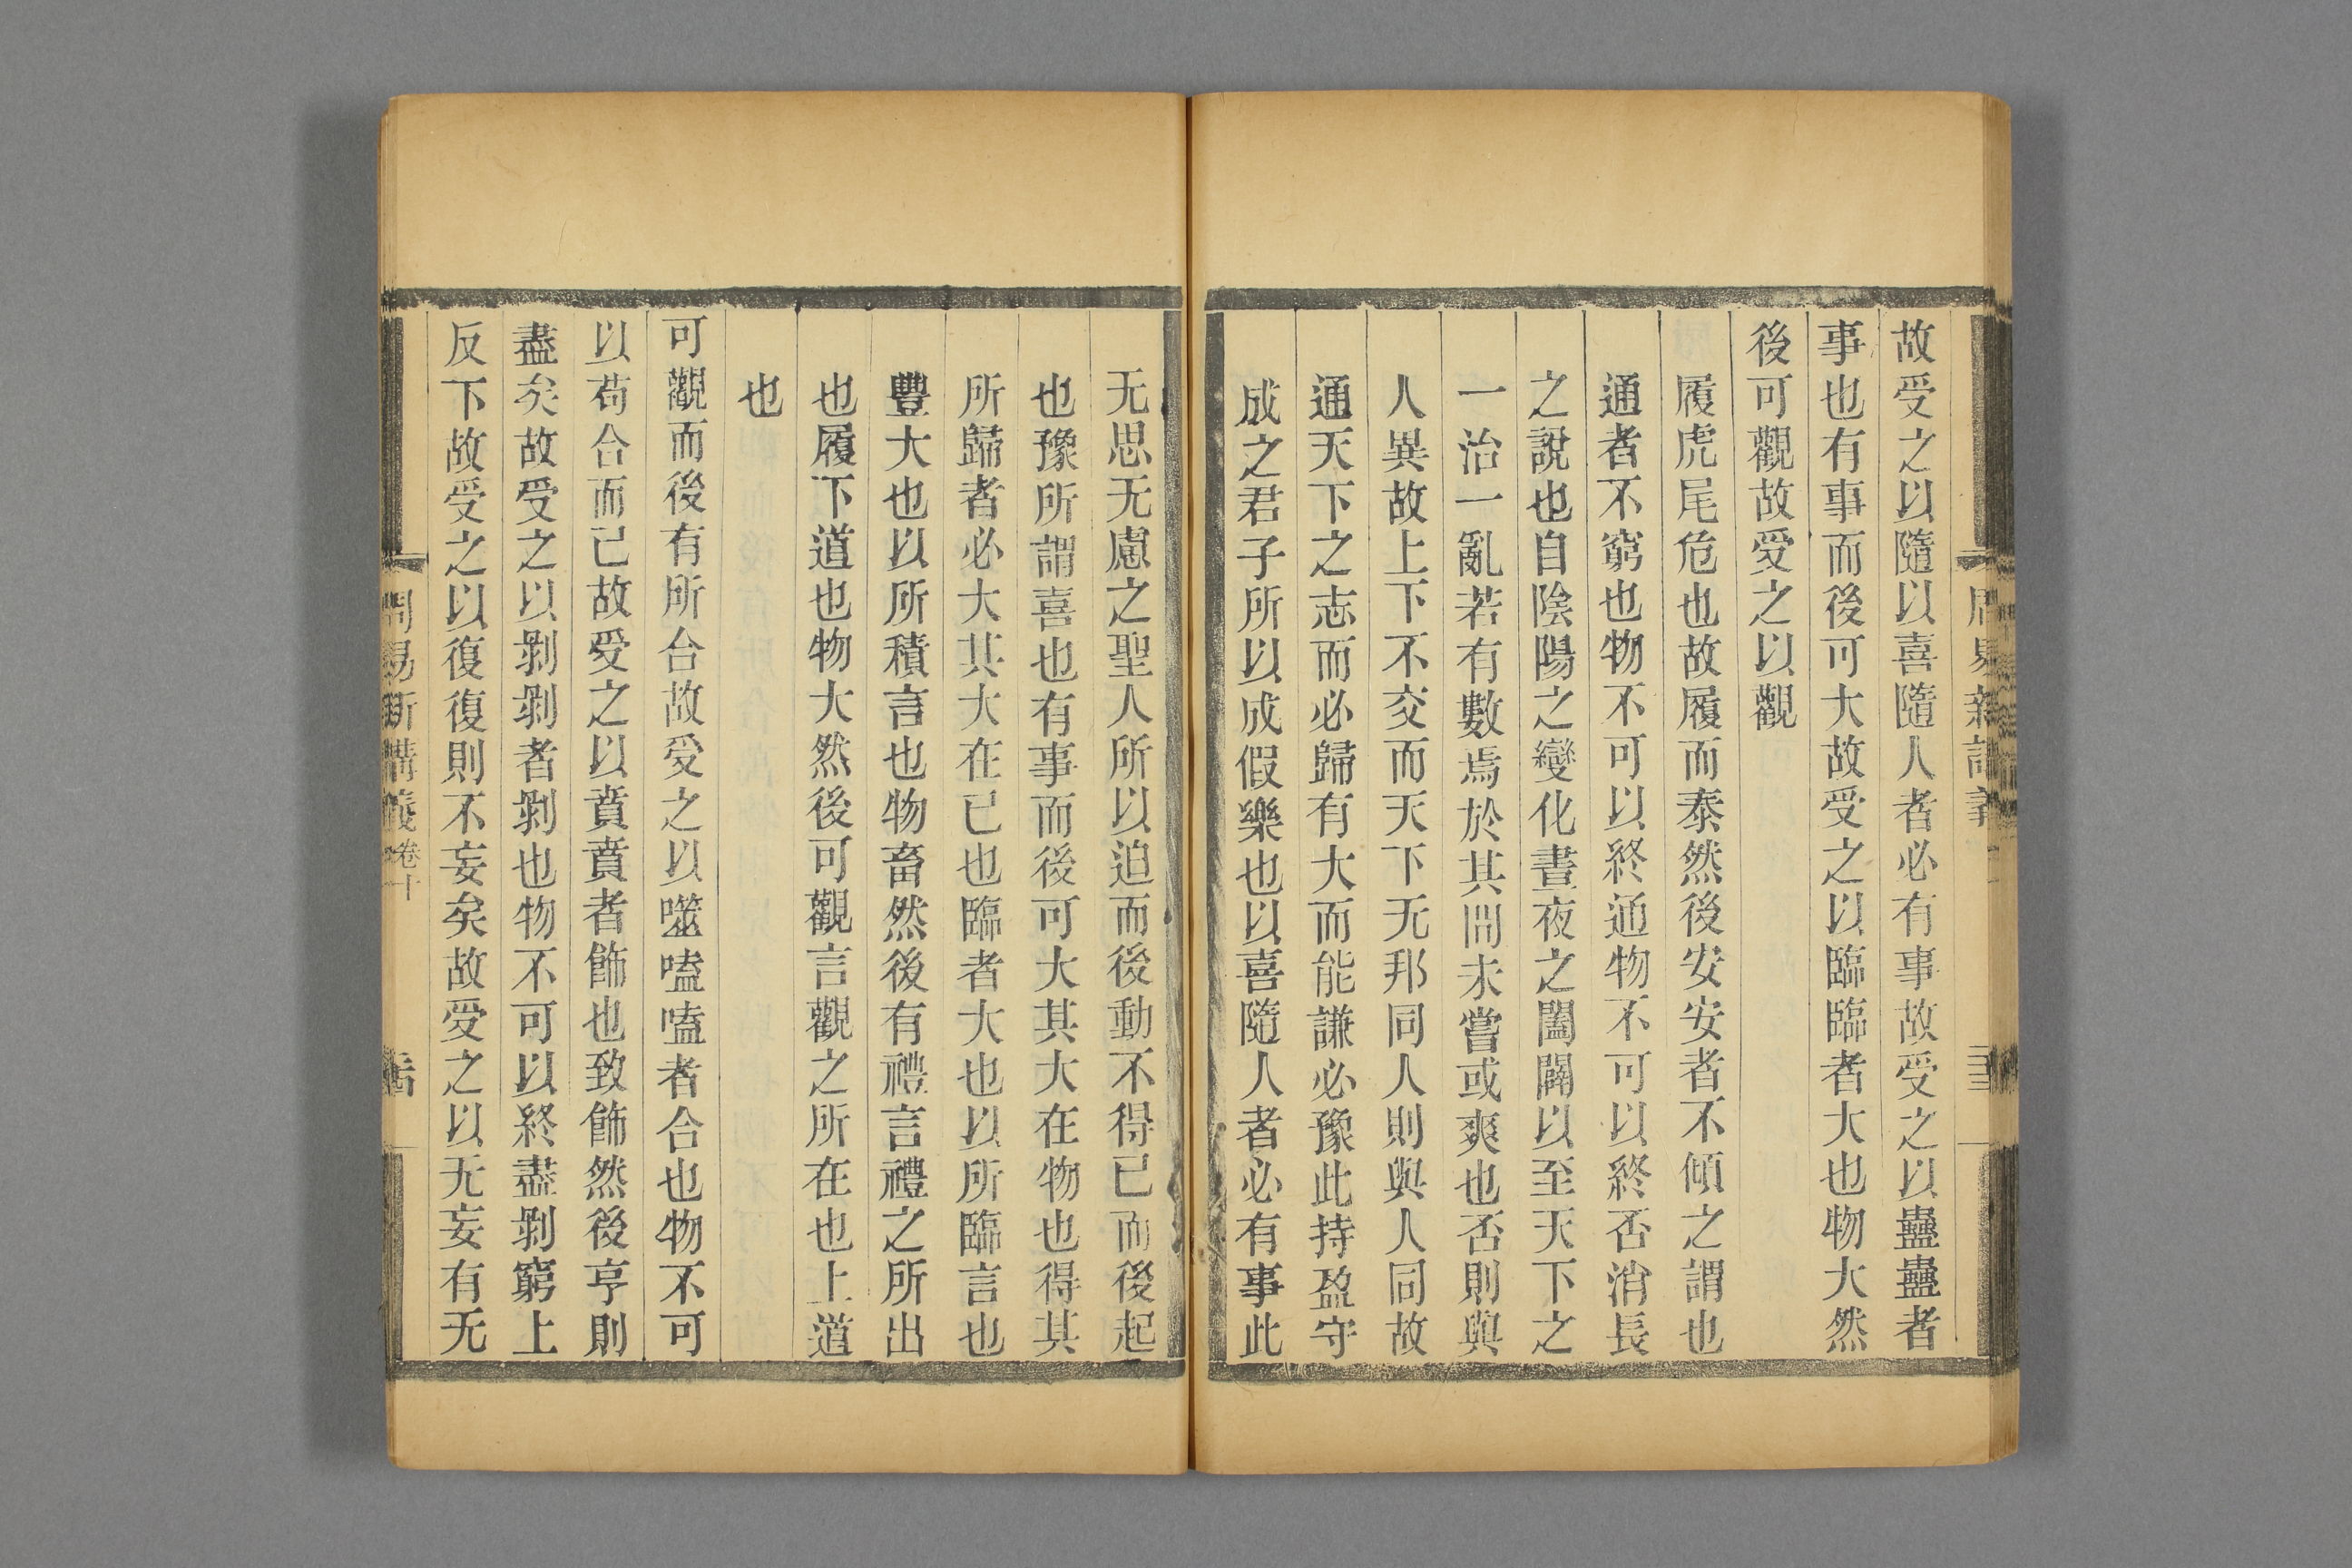 故受之以隨以喜隨人者必有事故受之以蠱蠱者
事也有事而後可大故受之以臨臨者大也物大然
後可觀故受之以觀
履虎尾危也故履而泰然後安安者不傾之謂也
通者不窮也物不可以終通物不可以終否消長
之說也自陰陽之變化晝夜之闔闢以至天下之
一治一亂若有數焉於其間未嘗或爽也否則與
人異故上下不交而天下无邦同人則與人同故
通天下之志而必歸有大而能謙必豫此持盈守
成之君子所以成假樂也以喜隨人者必有事此
无思无慮之聖人所以迫而後動不得已而後起
也豫所謂喜也有事而後可大其大在物也得其
所歸者必大其大在已也臨者大也以所臨言也
豐大也以所積言也物畜然後有禮言禮之所出
也履下道也物大然後可觀言觀之所在也上道
也
可觀而後有所合故受之以噬嗑嗑者合也物不可
以苟合而已故受之以賁賁者飾也致飾然後亨則
盡矣故受之以剝剝者剝也物不可以終盡剝窮上
反下故受之以復復則不妄矣故受之以无妄有无
周易新講義卷十